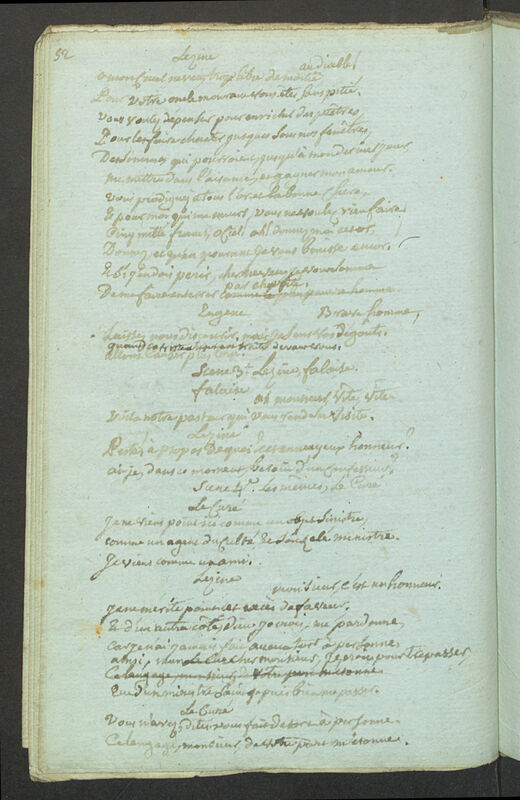 52
Lezine
au diable!
Pour votre oncle mourant vous êtes sans pitié.
Vous voulez dépenser pour enrichir des prêtres,
Pour les faire chanter quelques sous mes fenêtres,
Des sommes qui pourroient jusqu'à mon dernier jour,
me mettre dans l'aisance, et gagner mon amour.
Vous prodiguez à tous l'or et la bonne chère
Et pour moi qui me meurs, vous ne voulez rien faire
Cinq mille francs, ô ciel! ah! donnez moi cet or,
Donnez, et qu'en mourant je vous bénisse encor.
Et si je dois périr,
De me faire enterrer par charité pauvre homme.
Eugene
Brave homme,
Laissez nous
allons
Scene 3e. Lezine, falaise.
falaise
ah monsieur, vite, vite
Voilà notre pasteur qui vous rend sa visite.
Lezine
Peste! à propos de quoi cet ennuyeux honneur?
ai-je, dans ce moment besoin d'un confesseur?
Scene 4e. les mêmes, Le Curé
Le Curé
Je ne viens point ici comme un objet sinistre,
comme un agent du culte, et son ministre
Je viens comme un ami.
Lezine
monsieur, c'est un honneur.
Je ne mérite point cet excès de faveur.
Et d'un autre côté, dieu, je crois, me pardonne,
car je n'ai jamais fait aucun tort à personne,
ainsi, mon cher monsieur, je pourrai trépasser,
Ce langage, monsieur, de votre part m'étonne
Que d'un ministre saint je puis bien me passer.
Le Curé
Vous n'avez, dites vous fait de tort à personne
Ce langage, monsieur de votre part m'étonne.